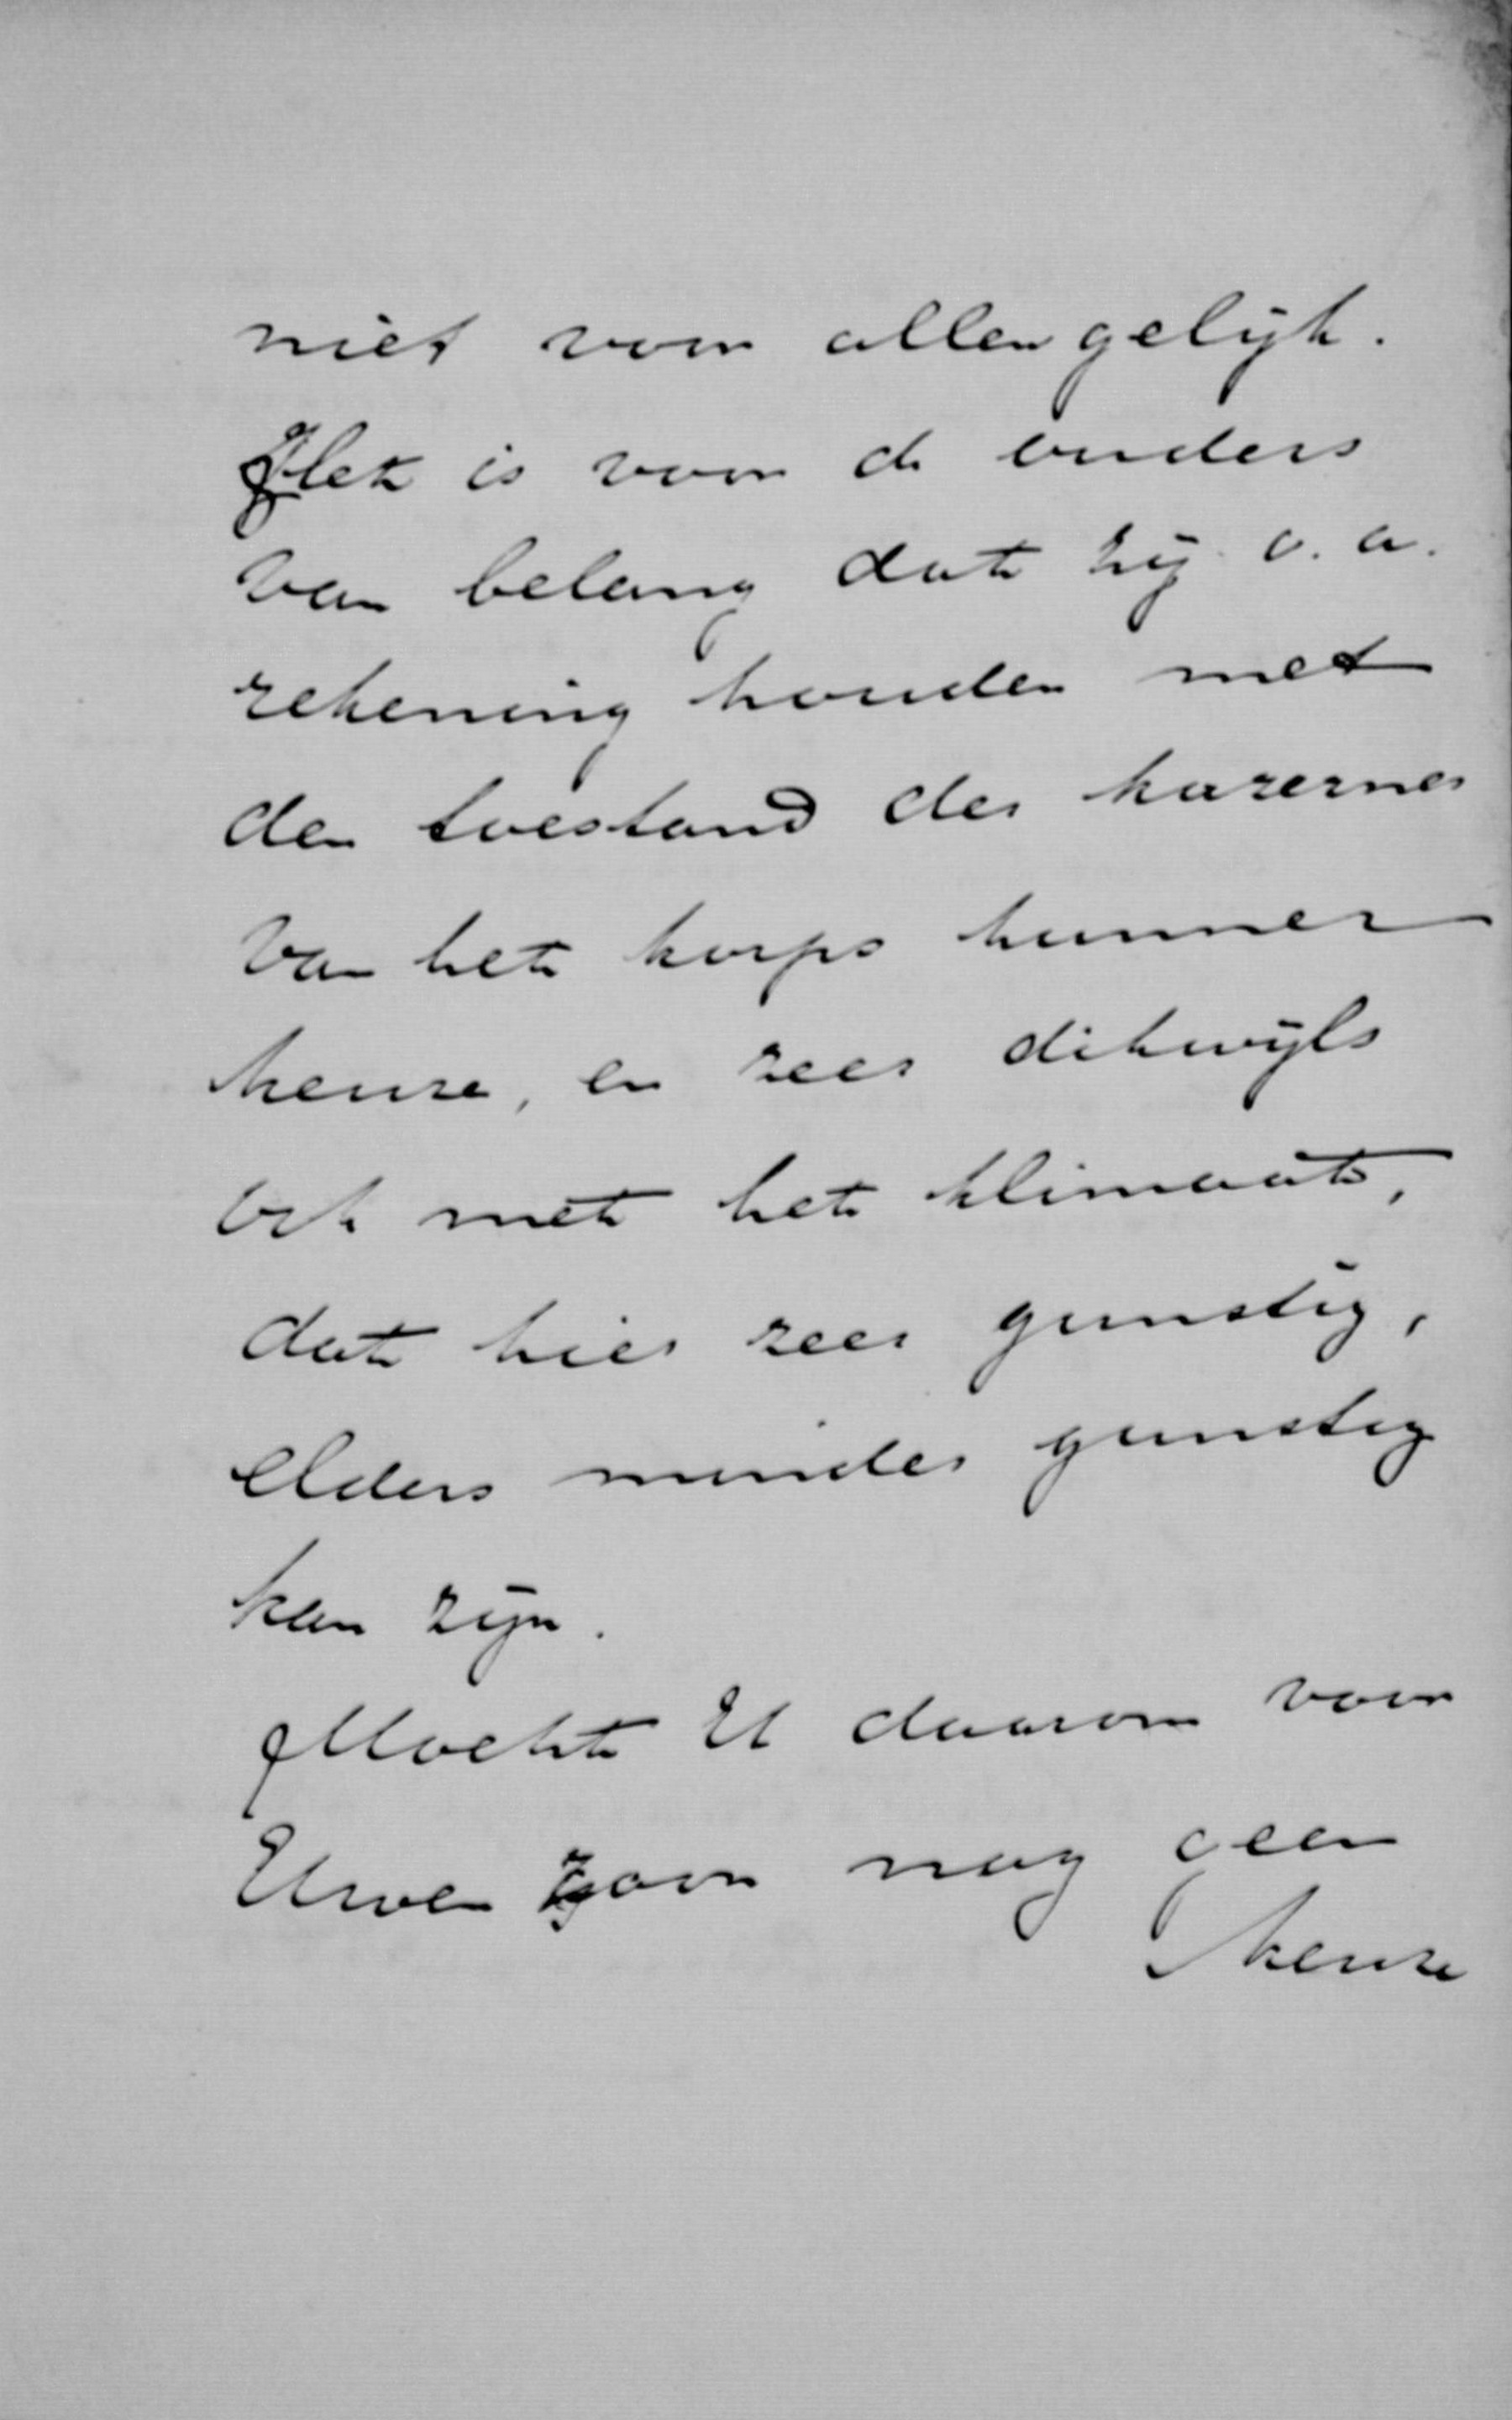 niet voor allen gelijk.
Het is voor de ouders
van belang dat zij o.a.
rekening houden met
den toestand der kazernes
van het korps hunner
keuze, en zeer dikwijls
ook met het klimaat,
dat hier zeer gunstig,
elders minder gunstig
kan zijn.
Mocht U daarom voor
Uwen zoon nog geen
keuze